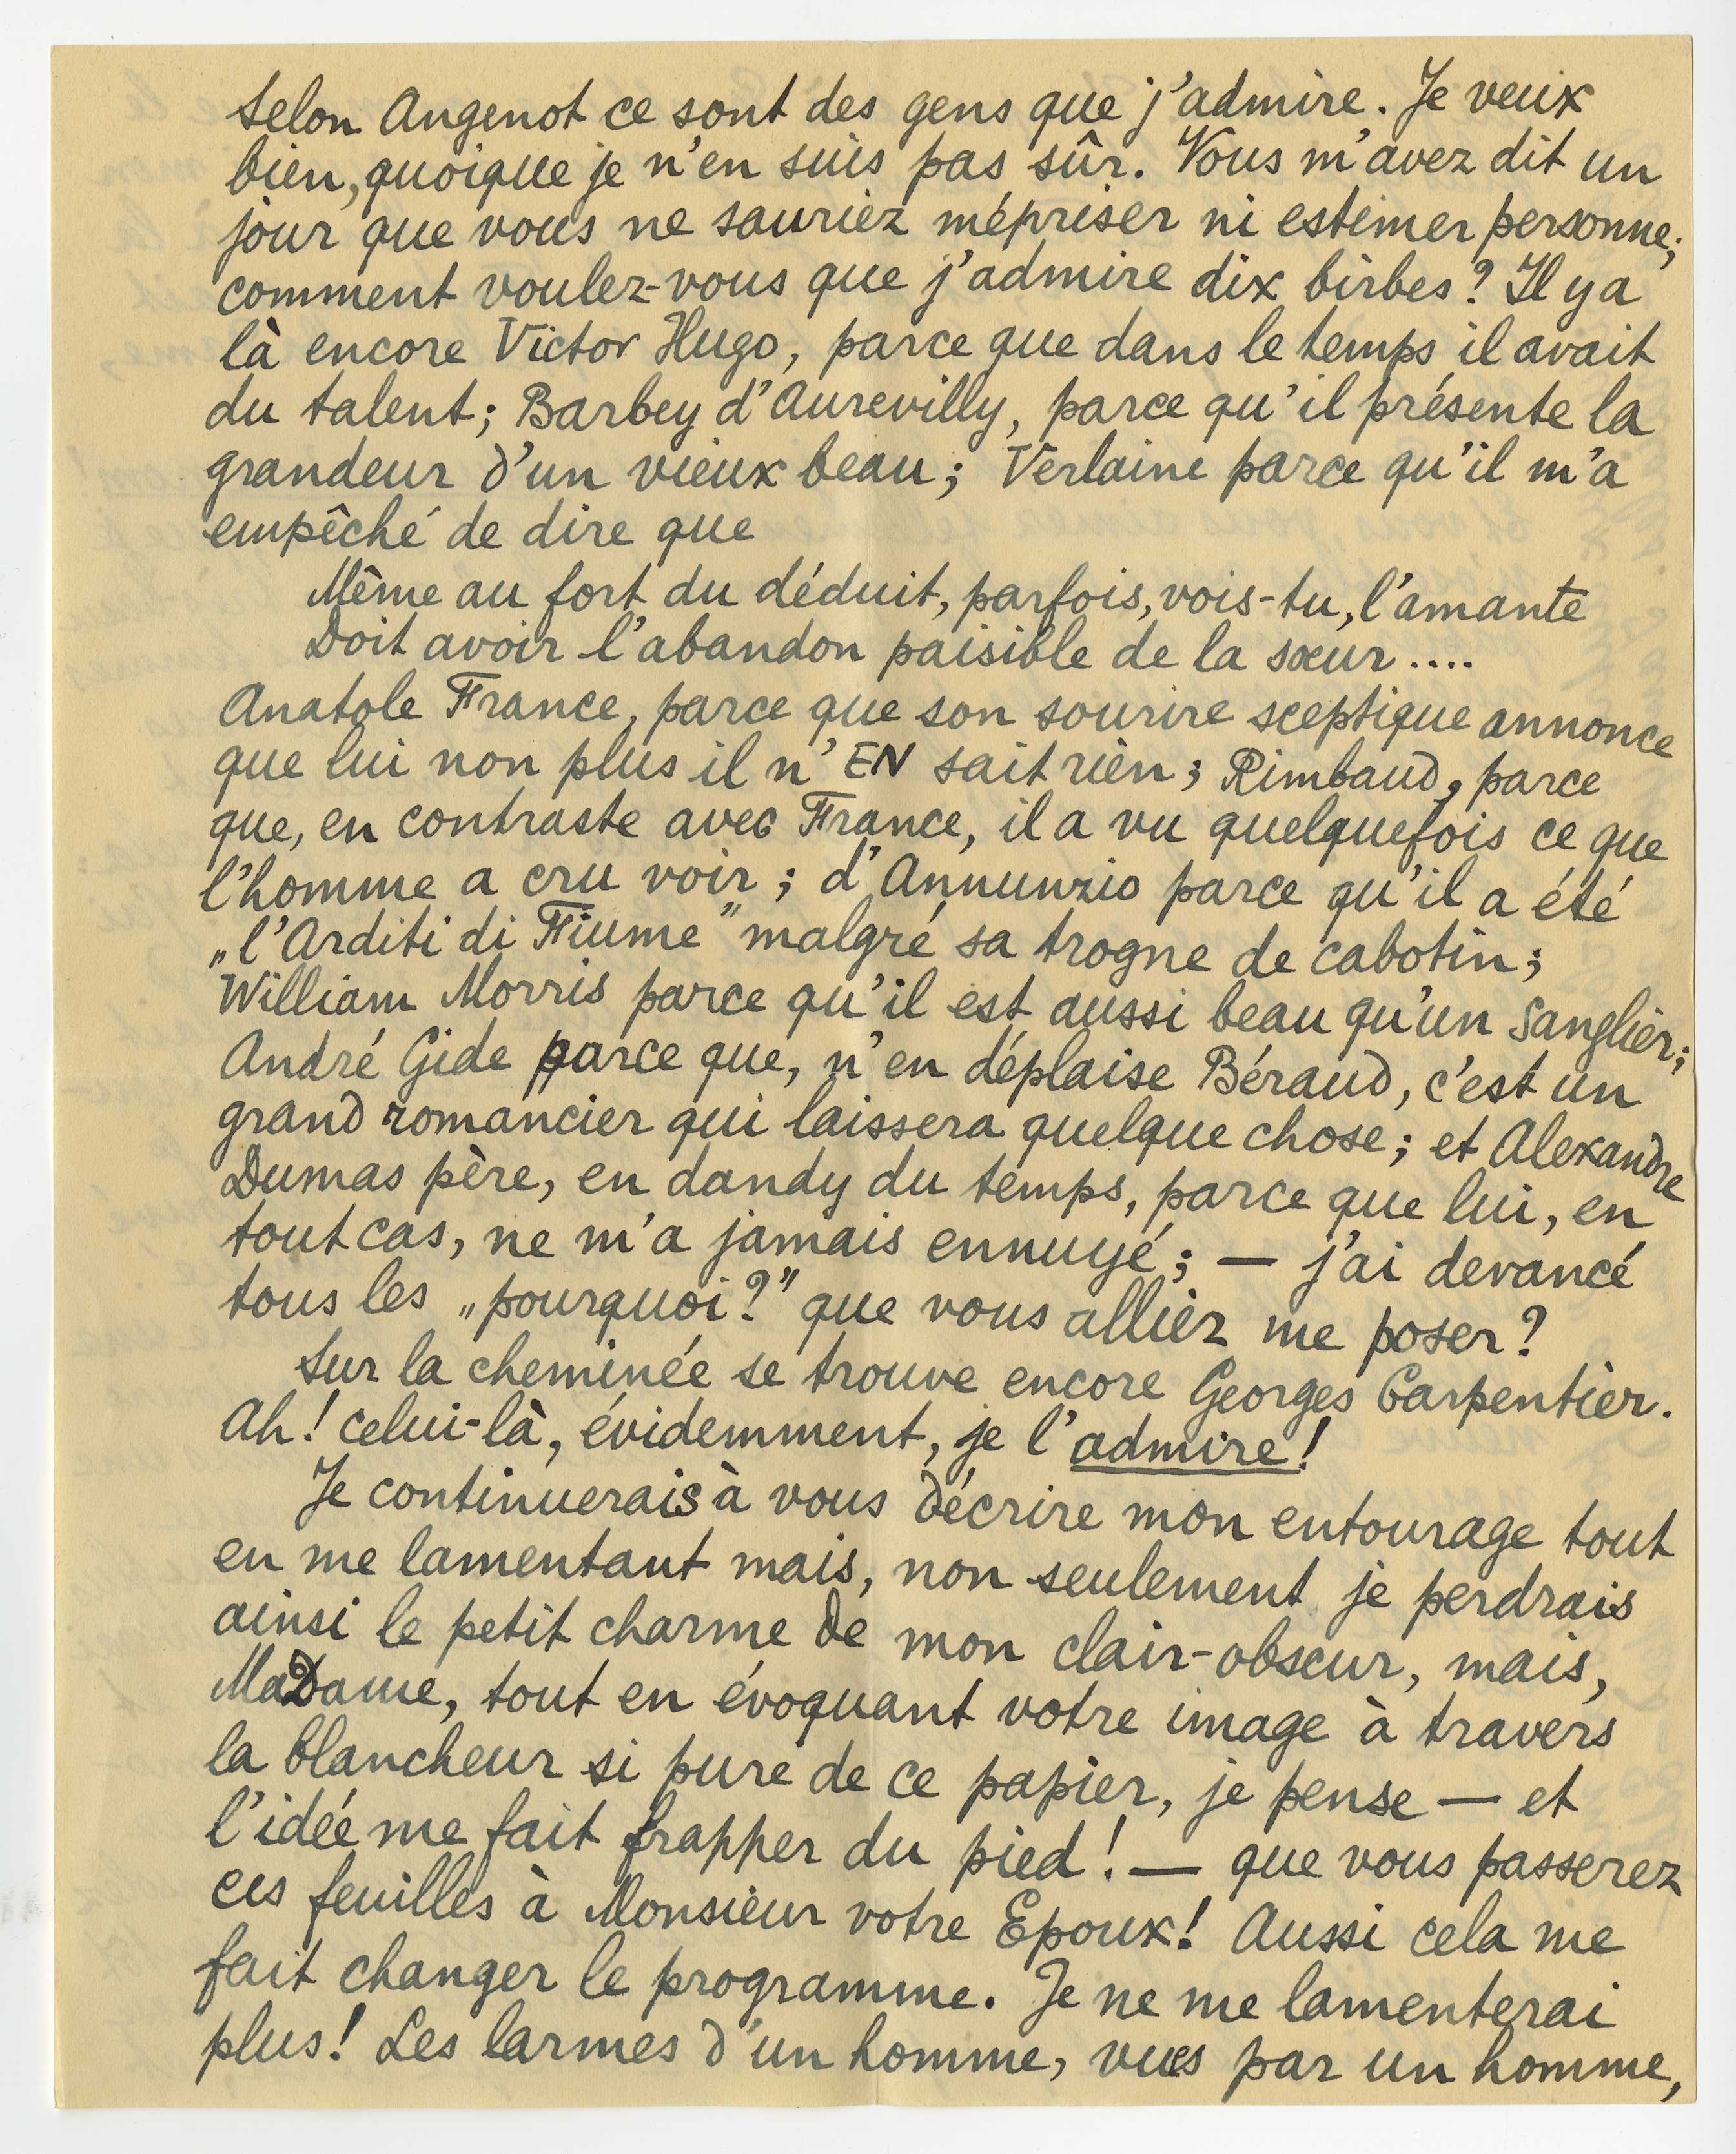 Selon Angenot ce sont des gens que j'admire. Je veux
bien, quoique je n'en suis pas sûr. Vous m'avez dit un
jour que vous ne sauriez mépriser ni estimer personne;
comment voulez-vous que j'admire dix birbes? Il y a
là encore Victor Hugo, parce que dans le temps il avait
du talent; Barbey d'Aurevilly, parce qu'il présente la
grandeur d'un vieux beau; Verlaine parce qu'il m'a
empêché de dire que
Même au fort du déduit, parfois, vois-tu, l'amante
Doit avoir l'abandon paisible de la sœur....
Anatole France, parce que son sourire sceptique annonce
que lui non plus il n'EN sait rien; Rimbaud, parce
que, en contraste avec France, il a vu quelquefois ce que
l'homme a cru voir; d'Annunzio parce qu'il a été
„l'Arditi di Fiume" malgré sa trogne de cabotin;
William Morris parce qu'il est aussi beau qu'un sanglier;
André Gide parce que, n'en déplaise Béraud, c'est un
grand romancier qui laissera quelque chose; et Alexandre
Dumas père, en dandy du temps, parce que lui, en
tout cas, ne m'a jamais ennuyé; — j'ai devancé
tous les „pourquoi?" que vous alliez me poser?
Sur la cheminée se trouve encore Georges Carpentier.
Ah! celui-là, évidemment, je l'admire!
Je continuerais à vous décrire mon entourage tout
en me lamentant mais, non seulement je perdrais
ainsi le petit charme de mon clair-obscur, mais,
MaDame, tout en évoquant votre image à travers
la blancheur si pure de ce papier, je pense — et
l'idée me fait frapper du pied! — que vous passerez
ces feuilles à Monsieur votre Epoux! Aussi cela me
fait changer le programme. Je ne me lamenterai
plus! Les larmes d'un homme, vues par un homme,